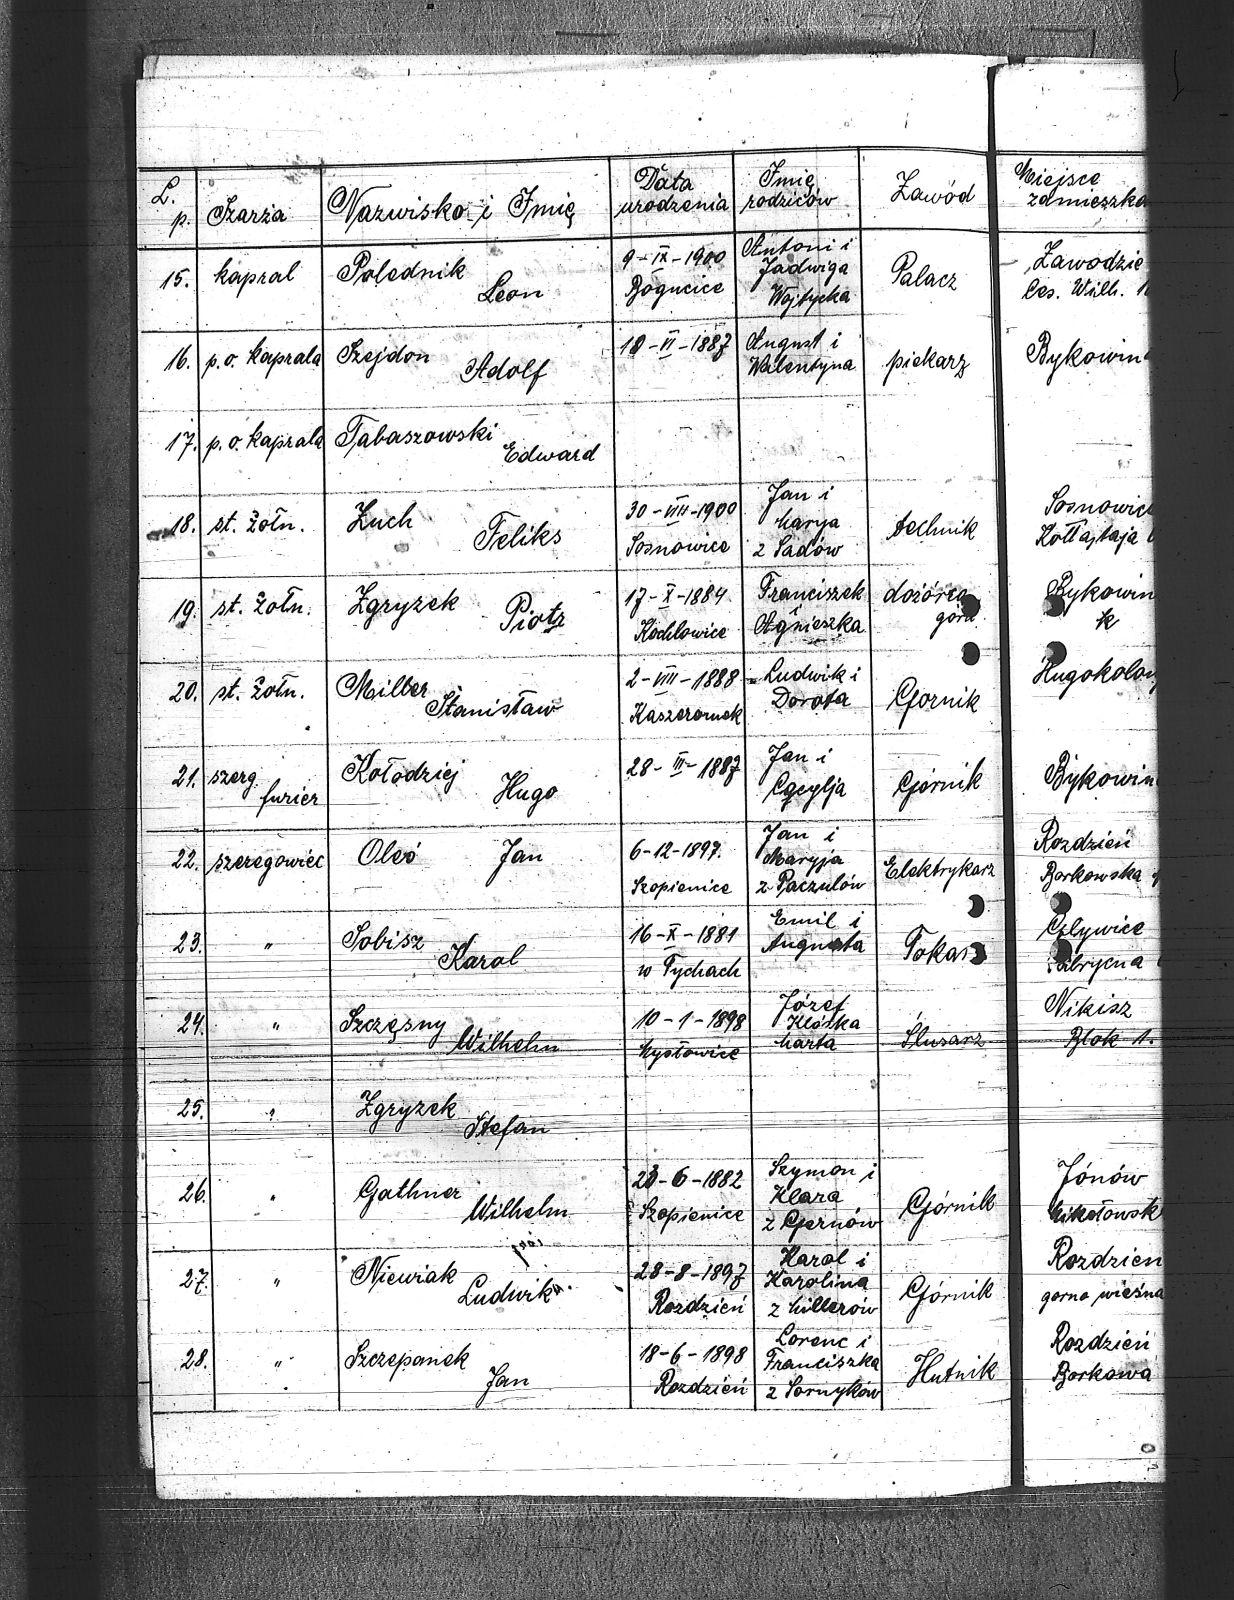 L. p. Szarża Nazwisko i Imię Data urodzenia Imię rodziców Zawód Miejsce zamieszka
15. kapral Polednik Leon 9-IX-1900 Bogucice Antoni i Jadwiga Wojtycka Palacz Zawodzie Ces. Wilh.
16. p.o. kaprala Szejdon Adolf 10-VI-1887 August i Walentyna piekarz Bykowin
17. p.o. kaprala Tabaszowski Edward
18. st. żołn. Zuch Feliks 30-VIII-1900 Sosnowice Jan i Marya z Sadów technik Sosnowice Kołłątaja
19. st. żołn. Zgryzek Piotr 17-X-1884 Kochłowice Franciszek Agnieszka dozórca górn. Bykowin k
20. st. żołn. Miller Stanisław 2-VIII-1888 Ludwik i Dorota Gornik Hugokolon
21. szerg. furier Kołodziej Hugo 28-III-1887 Jan i Cecylja Górnik Bykowin
22. szeregowiec Oleś Jan 6-12-1897. Szopienice Jan i Maryja z Paczulów Elektrykarz Rozdzień Borkowska
23. " Sobisz Karol 16-X-1881 w Tychach Emil i Augusta Tokarz Glywice fabrycna
24. " Szczęsny Wilhelm 10-1-1898 Mysłowice Józef Klótka Marta Ślusarz Nikisz Blok 1.
25. " Zgryzek Stefan
26. " Gathner Wilhelm 23-6-1882 Szopienice Szymon i Klara z Gernów Górnik Jónów Mikołowsk
27. " Niewiak Ludwik 28-8-1897 Rozdzień Karol i Karolina z Millerów Górnik Rozdzien gorno wieśna
28. " Szczepanek Jan 18-6-1898 Rozdzień Lorenc i Franciszka z Sornyków Hutnik Rozdzień Borkowa